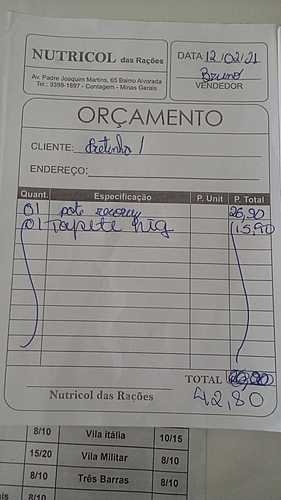 NUTRICOL das Rações
Av. Padre Joaquim Martins, 65 Bairro Alvorada
Tel.: 3398-1897 - Contagem - Minas Gerais
DATA 12/02/21
Bruno
VENDEDOR
ORÇAMENTO
CLIENTE: Pretinho
ENDEREÇO:
Quant. Especificação P. Unit P. Total
01 pote 26,90
01 tapete hig 15,90
TOTAL
42,80
Nutricol das Rações
8/10 Vila itália 10/15
15/20 Vila Militar 8/10
8/10 Três Barras 8/10
8/10